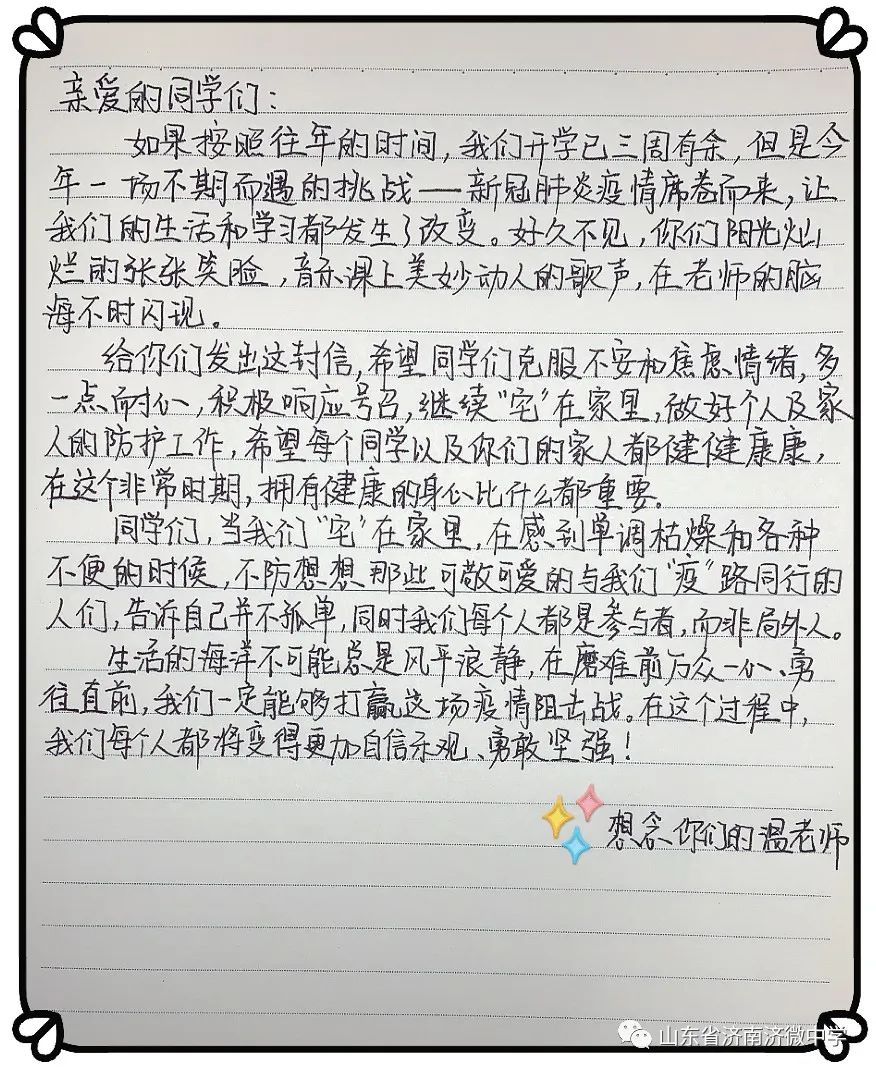 亲爱的同学们：
如果按照往年的时间，我们开学已三周有余，但是今
年一场不期而遇的挑战——新冠肺炎疫情席卷而来，让
我们的生活和学习都发生了改变。好久不见，你们阳光灿
烂的张张笑脸，音乐课上美妙动人的歌声，在老师的脑
海不时闪现。
给你们发出这封信，希望同学们克服不安和焦虑情绪，多
一点耐心，积极响应号召，继续“宅”在家里，做好个人及家
人的防护工作，希望每个同学以及你们的家人都健健康康，
在这个非常时期，拥有健康的身心比什么都重要。
同学们，当我们“宅”在家里，在感到单调枯燥和各种
不便的时候，不防想想那些可敬可爱的与我们“疫”路同行的
人们，告诉自己并不孤单，同时我们每个人都是参与者，而非局外人。
生活的海洋不可能总是风平浪静，在磨难前万众一心、勇
往直前，我们一定能够打赢这场疫情阻击战。在这个过程中，
我们每个人都将变得更加自信乐观、勇敢坚强！
想念你们的温老师
山东省济南济微中学